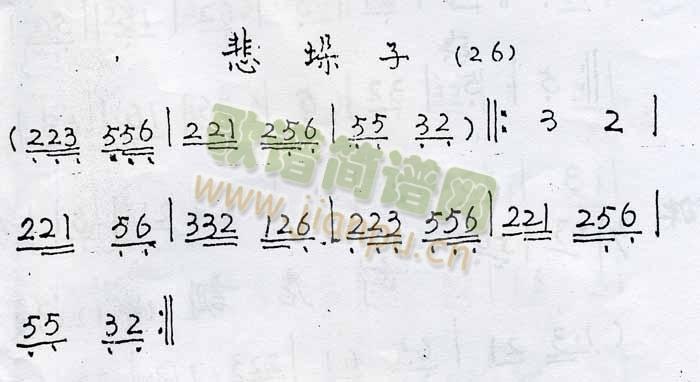 悲垛子(26)
(223 556|221 256|55 32)‖: 3 2|
221 56|332 126|223 556|221 256|
55 32:‖
歌谱简谱网
www.jianpu.cn